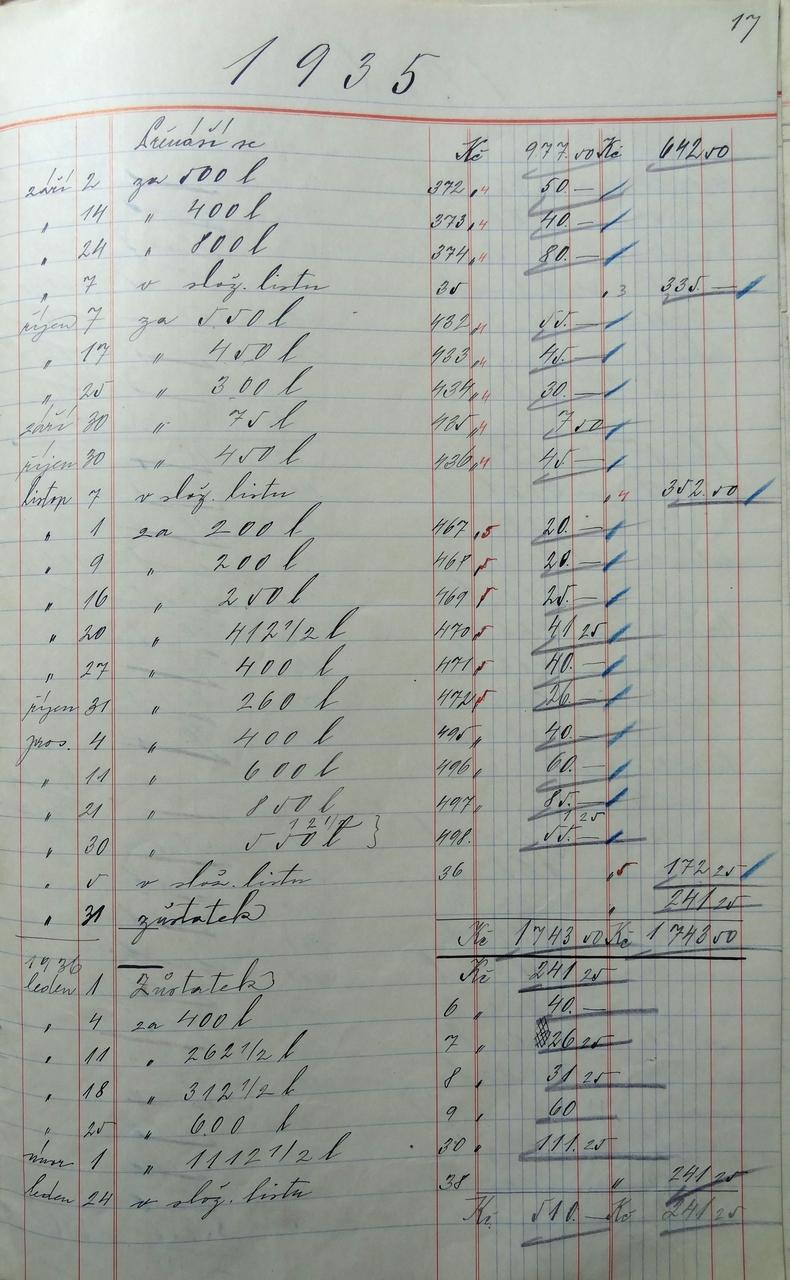 17
1935
Přenáší se Kč 977.50 Kč 642 50
září 2 za 500 l 372 „ 4 50.—
„ 14 „ 400 l 373 „ 4 40.—
„ 24 „ 800 l 374 „ 4 80.—
„ 7 v slož. listu 35 „ 3 335.—
říjen 7 za 550 l 432 „ 4 55.—
„ 17 „ 450 l 433 „ 4 45.—
„ 25 „ 300 l 434 „ 4 30.—
září 30 „ 75 l 435 „ 4 7 50
říjen 30 „ 450 l 436 „ 4 45.—
listop 7 v slož. listu „ 4 352.50
„ 1 za 200 l 467 „ 5 20.—
„ 9 „ 200 l 468 „ 5 20.—
„ 16 „ 250 l 469 5 25.—
„ 20 „ 412 1/2 l 470 „ 5 41 25
„ 27 „ 400 l 471 „ 5 40.—
říjen 31 „ 260 l 472 „ 5 26.—
pros. 4 „ 400 l 495 „ 40.—
„ 11 „ 600 l 496 „ 60.—
„ 21 „ 850 l 497 „ 85.—
12 1/2 1 25
„ 30 „ 550 l } 498. 55.—
„ 5 v slož. listu 36 „ 5 172 25
„ 31 zůstatek „ 241 25
Kč 1743 50 Kč 1743 50
1936
leden 1 Zůstatek Kč 241 25
„ 4 za 400 l 6 „ 40.—
„ 11 „ 262 1/2 l 7 „ 26 25
„ 18 „ 312 1/2 l 8 „ 31 25
„ 25 „ 600 l 9 „ 60
únor 1 „ 1112 1/2 l 30 „ 111.25
leden 24 v slož. listu 38 „ 241 25
Kč 510.— Kč 241 25